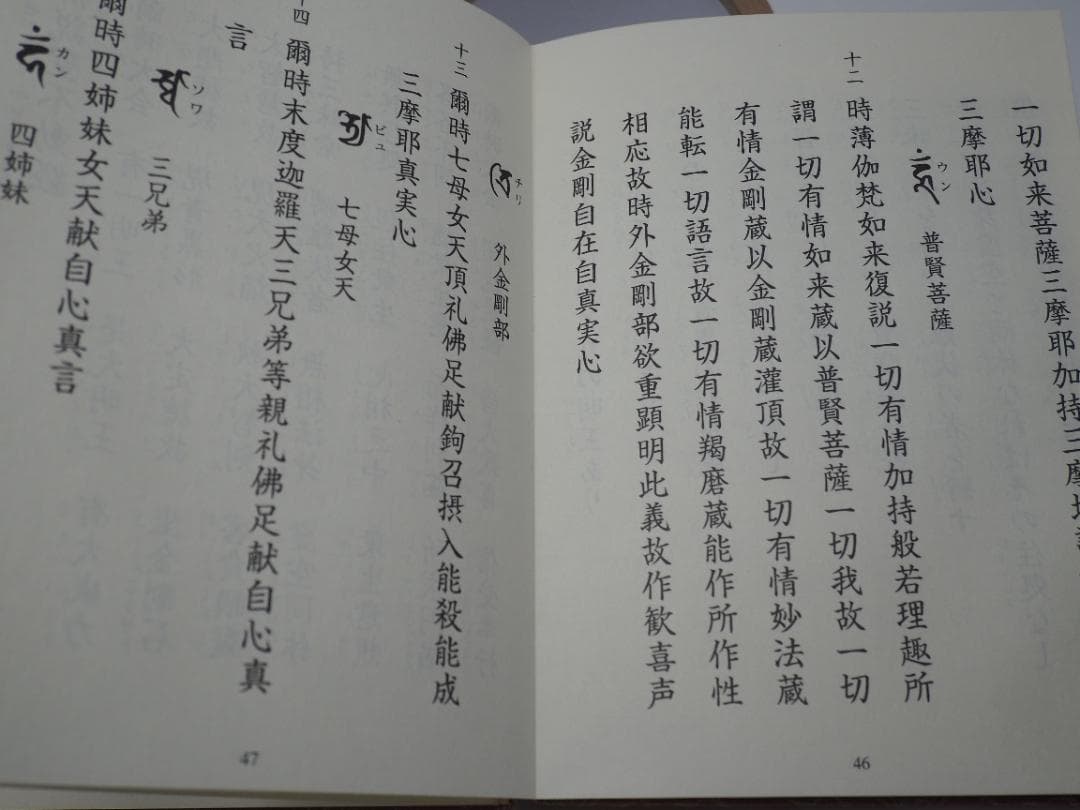 一切如来菩薩三摩耶加持三摩地
三摩耶心
ウン
普賢菩薩
十二 時薄伽梵如来復説一切有情加持般若理趣所
謂一切有情如来蔵以普賢菩薩一切我故一切
有情金剛蔵以金剛蔵灌頂故一切有情妙法蔵
能転一切語言故一切有情羯磨蔵能作所作性
相応故時外金剛部欲重顕明此義故作歓喜声
説金剛自在自真実心
46
チリ
外金剛部
十三 爾時七母女天頂礼佛足献鉤召摂入能殺能成
三摩耶真実心
ビュ
七母女天
十四 爾時末度迦羅天三兄弟等親礼佛足献自心真
言
ソワ
三兄弟
爾時四姉妹女天献自心真言
カン
四姉妹
47